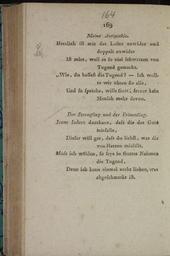 164
169
Meine Antipathie.
Herzlich ist mir das Laster zuwider und
doppelt zuwider
Ist mirs, weil es so viel schwatzen von
Tugend gemacht.
„Wie, du hassest die Tugend? — Ich wollte
wir übten sie alle,
Und so spräche, wills Gott, ferner kein
Mensch mehr davon.
Der Strengling und der Frömmling.
Jener fodert durchaus, daß dir das Gute
misfalle,
Dieser will gar, daß du liebst, was dir
von Herzen misfällt.
Muß ich wählen, so seys in Gottes Nahmen
die Tugend,
Denn ich kann einmal nicht lieben, was
abgeschmackt ist.